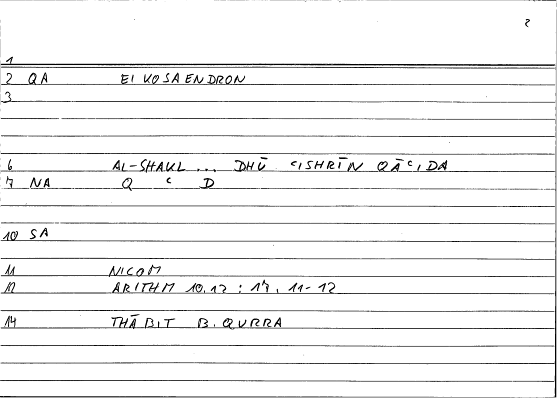 2
1
2 QA EIKOSAENDRON
3
6 AL-SHAKL ... DHŪ ʿISHRĪN QĀʿIDA
7 NA Q ʿ D
10 SA
11 NICOM
12 ARITHM 10.12 : 17, 11-12
14 THĀBIT B. QURRA